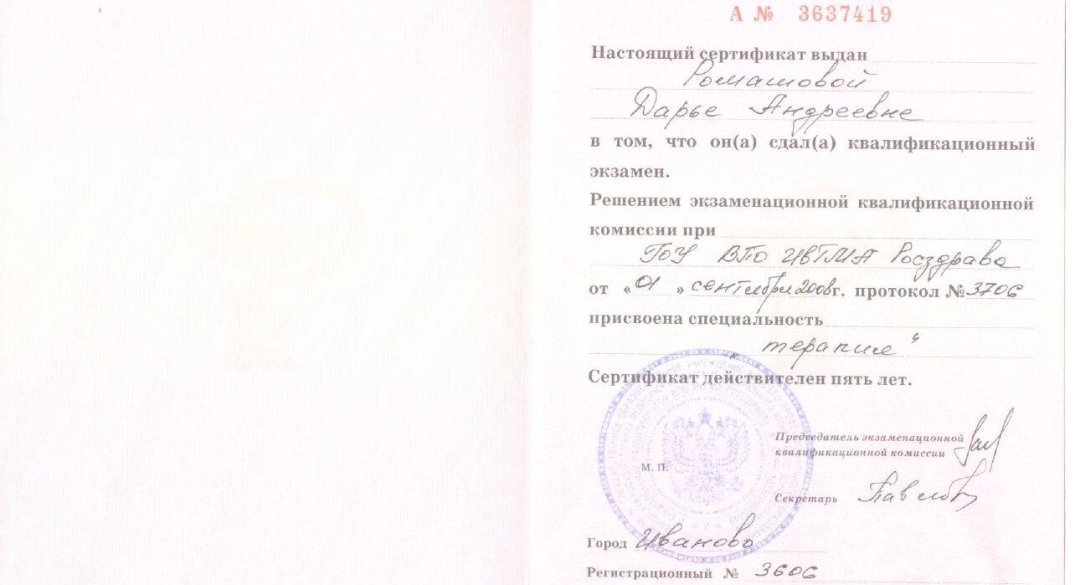 А № 3637419
Настоящий сертификат выдан
Ромашовой
Дарье Андреевне
в том, что он(а) сдал(а) квалификационный
экзамен.
Решением экзаменационной квалификационной
комиссии при
ГОУ ВПО ИвГМА Росздрава
от «01» сентября 2008г. протокол № 3706
присвоена специальность
„терапия“
Сертификат действителен пять лет.
Председатель экзаменационной
квалификационной комиссии
М. П.
Секретарь
Город Иваново
Регистрационный № 3606